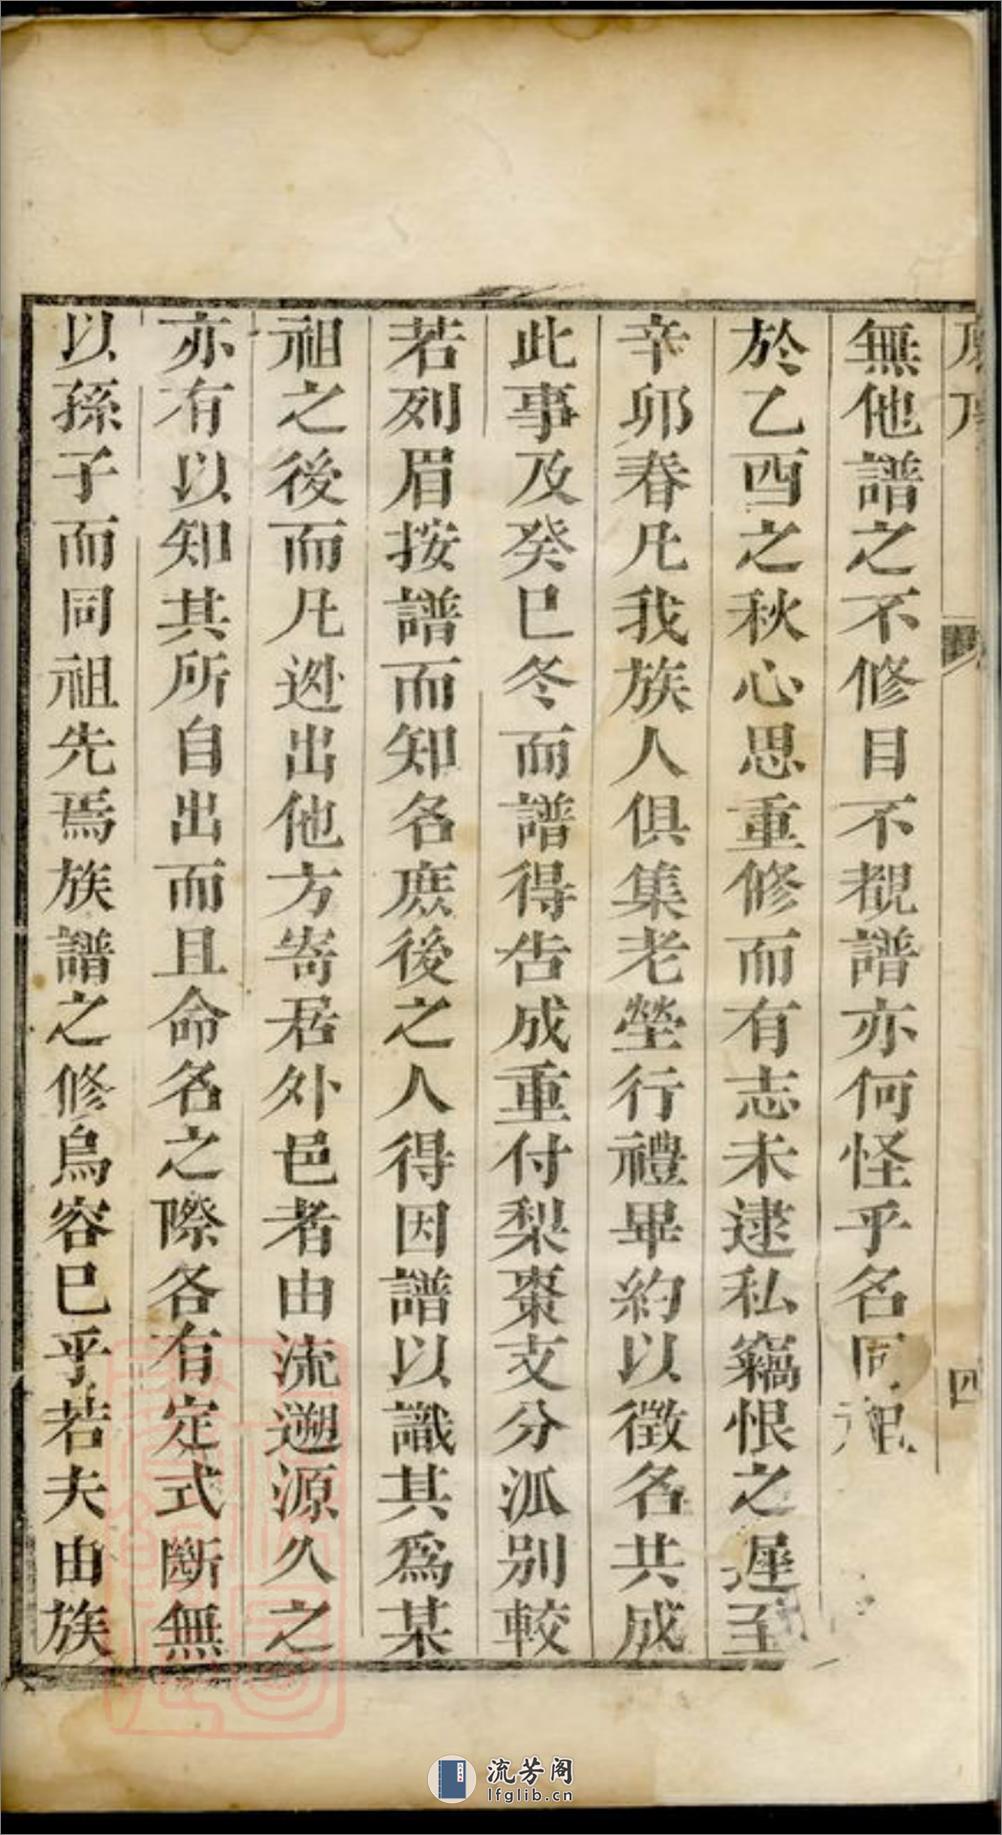 四
無他譜之不修目不覩譜亦何怪乎名同祖
於乙酉之秋心思重修而有志未逮私竊恨之遲至
辛卯春凡我族人俱集老塋行禮畢約以徵名共成
此事及癸巳冬而譜得告成重付梨棗支分派別較
若列眉按譜而知名庶後之人得因譜以識其為某
祖之後而凡逊出他方寄居外邑者由流遡源久之
亦有以知其所自出而且命名之際各有定式斷無
以孫子而同祖先焉族譜之修烏容已乎若夫由族
流芳阁
lfglib.cn